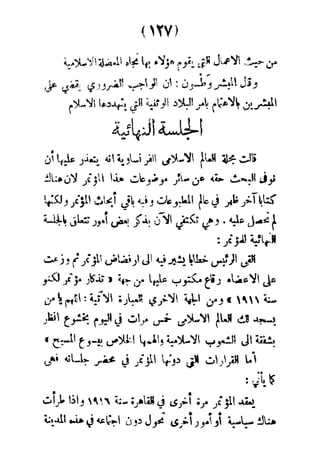 (١٢٧)
من حيث الاعمال التي يقوم هؤلاء بها تجاه المعضلة الاسلامية
وقال المبشر وطسون : ان الواجب الضروري يقضي على
المبشرين بالاهتمام بامر البلاد الوثنية التي يتهددها الاسلام
الجلسة النهائية
قالت مجلة العالم الاسلامى الفرنساوية انه يتعذر عليها أن
توفى البحث حقه عن سائر موضوعات هذا المؤتمر لان هناك
كتابا آخر ظهر في عالم المطبوعات وفيه باقي أبحاث المؤتمر ولكنها
لم تحصل عليه . وهي تكتفي الآن بذكر بعض أمور تتعلق بالجلسة
النهائية للمؤتمر :
ألقى الرئيس خطابا يشير فيه الى ارفضاض المؤتمر ثم وزعت
على الاعضاء رقاع مكتوب عليها من جهة « تذكار مؤتمر لكنو
سنة ١٩١١ » ومن الجهة الاخرى العبارة الآتية : اللهم يا من
يسجد لك العالم الاسلامى خمس مرات في اليوم بخشوع انظر
بشفقة الى الشعوب الاسلامية وألهمها الخلاص بيسوع المسيح »
أما القرارات التى دونها المؤتمر في محضر جلساته فهى
كما يأتي :
يعقد المؤتمر مرة أخرى في القاهرة سنة ١٩١٦ واذا طرأت
هناك سياسية أو أمور أخرى تحول دون اجتماعه في هذه المدينة